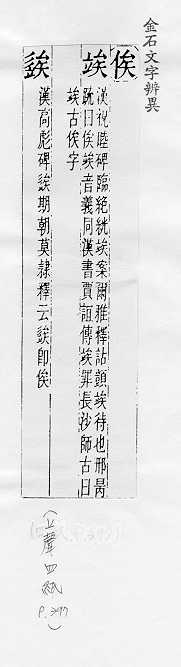 金石文字辨異
俟
竢 漢祝睦碑臨絕綍竢案爾雅釋詁頾竢待也邢昺
疏曰俟竢音義同漢書賈誼傳竢罪長沙師古曰
竢古俟字
漢高彪碑 期朝莫隸釋云 即俟
(上聲四紙
P.297)